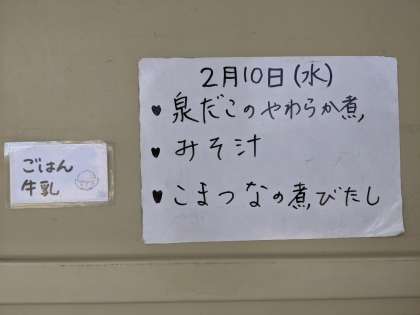 2月10日(水)
♥ 泉だこのやわらか煮
♥ みそ汁
♥ こまつなの煮びたし
ごはん
牛乳